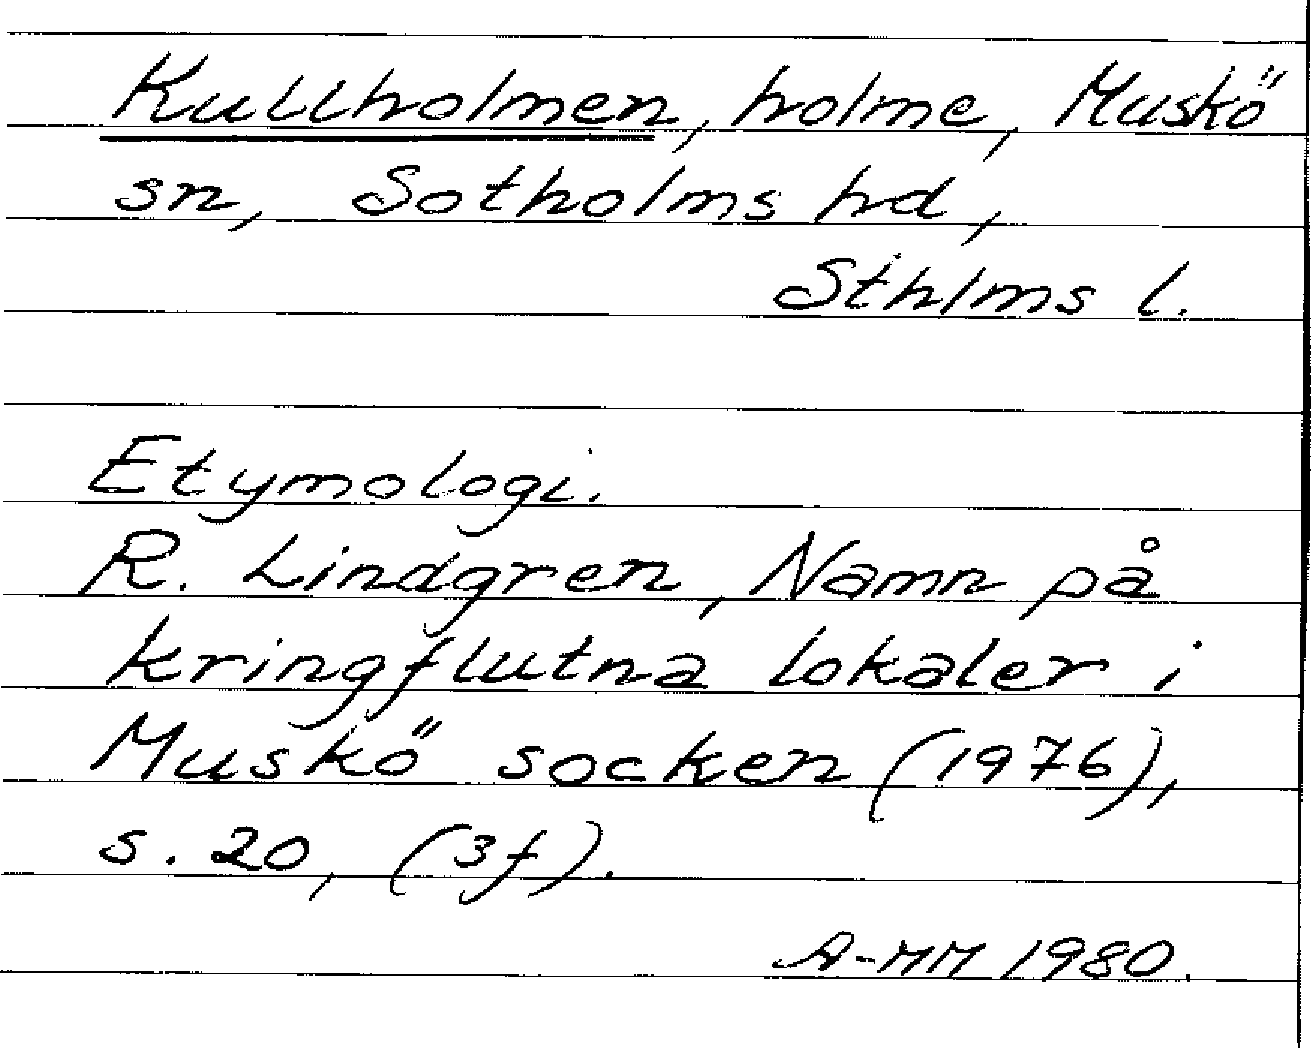 Kullholmen, holme, Muskö
sn, Sotholms hd,
Sthlms l.
Etymologi.
R. Lindgren, Namn på
kringflutna lokaler i
Muskö socken (1976),
s. 20, (3f).
A-MM 1980.